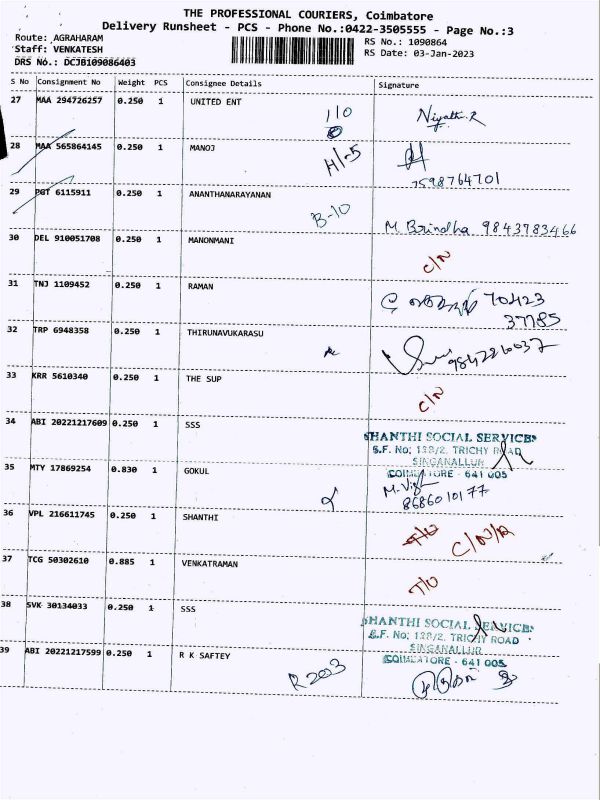 THE PROFESSIONAL COURIERS, Coimbatore
Delivery Runsheet - PCS - Phone No.:0422-3505555 - Page No.:3
Route: AGRAHARAM
Staff: VENKATESH
DRS No.: DCJB109086403
RS No.: 1090864
RS Date: 03-Jan-2023
S No Consignment No Weight PCS Consignee Details Signature
27 MAA 294726257 0.250 1 UNITED ENT
28 MAA 565864145 0.250 1 MANOJ H/-5
7598764701
29 PGT 6115911 0.250 1 ANANTHANARAYANAN
B-10 M. Brindha 9843783466
30 DEL 910051708 0.250 1 MANONMANI C/N
31 TNJ 1109452 0.250 1 RAMAN 70423
37785
32 TRP 6948358 0.250 1 THIRUNAVUKARASU
33 KRR 5610340 0.250 1 THE SUP C/N
34 ABI 20221217609 0.250 1 SSS
SHANTHI SOCIAL SERVICES
S.F. No: 138/2, TRICHY ROAD
SINGANALLUR
COIMBATORE - 641 005
35 MTY 17869254 0.830 1 GOKUL
8686010177
36 VPL 216611745 0.250 1 SHANTHI C/N/R
37 TCG 50302610 0.885 1 VENKATRAMAN T/O
38 SVK 30134033 0.250 1 SSS
SHANTHI SOCIAL SERVICES
S.F. No: 138/2, TRICHY ROAD
SINGANALLUR
COIMBATORE - 641 005
39 ABI 20221217599 0.250 1 R K SAFTEY